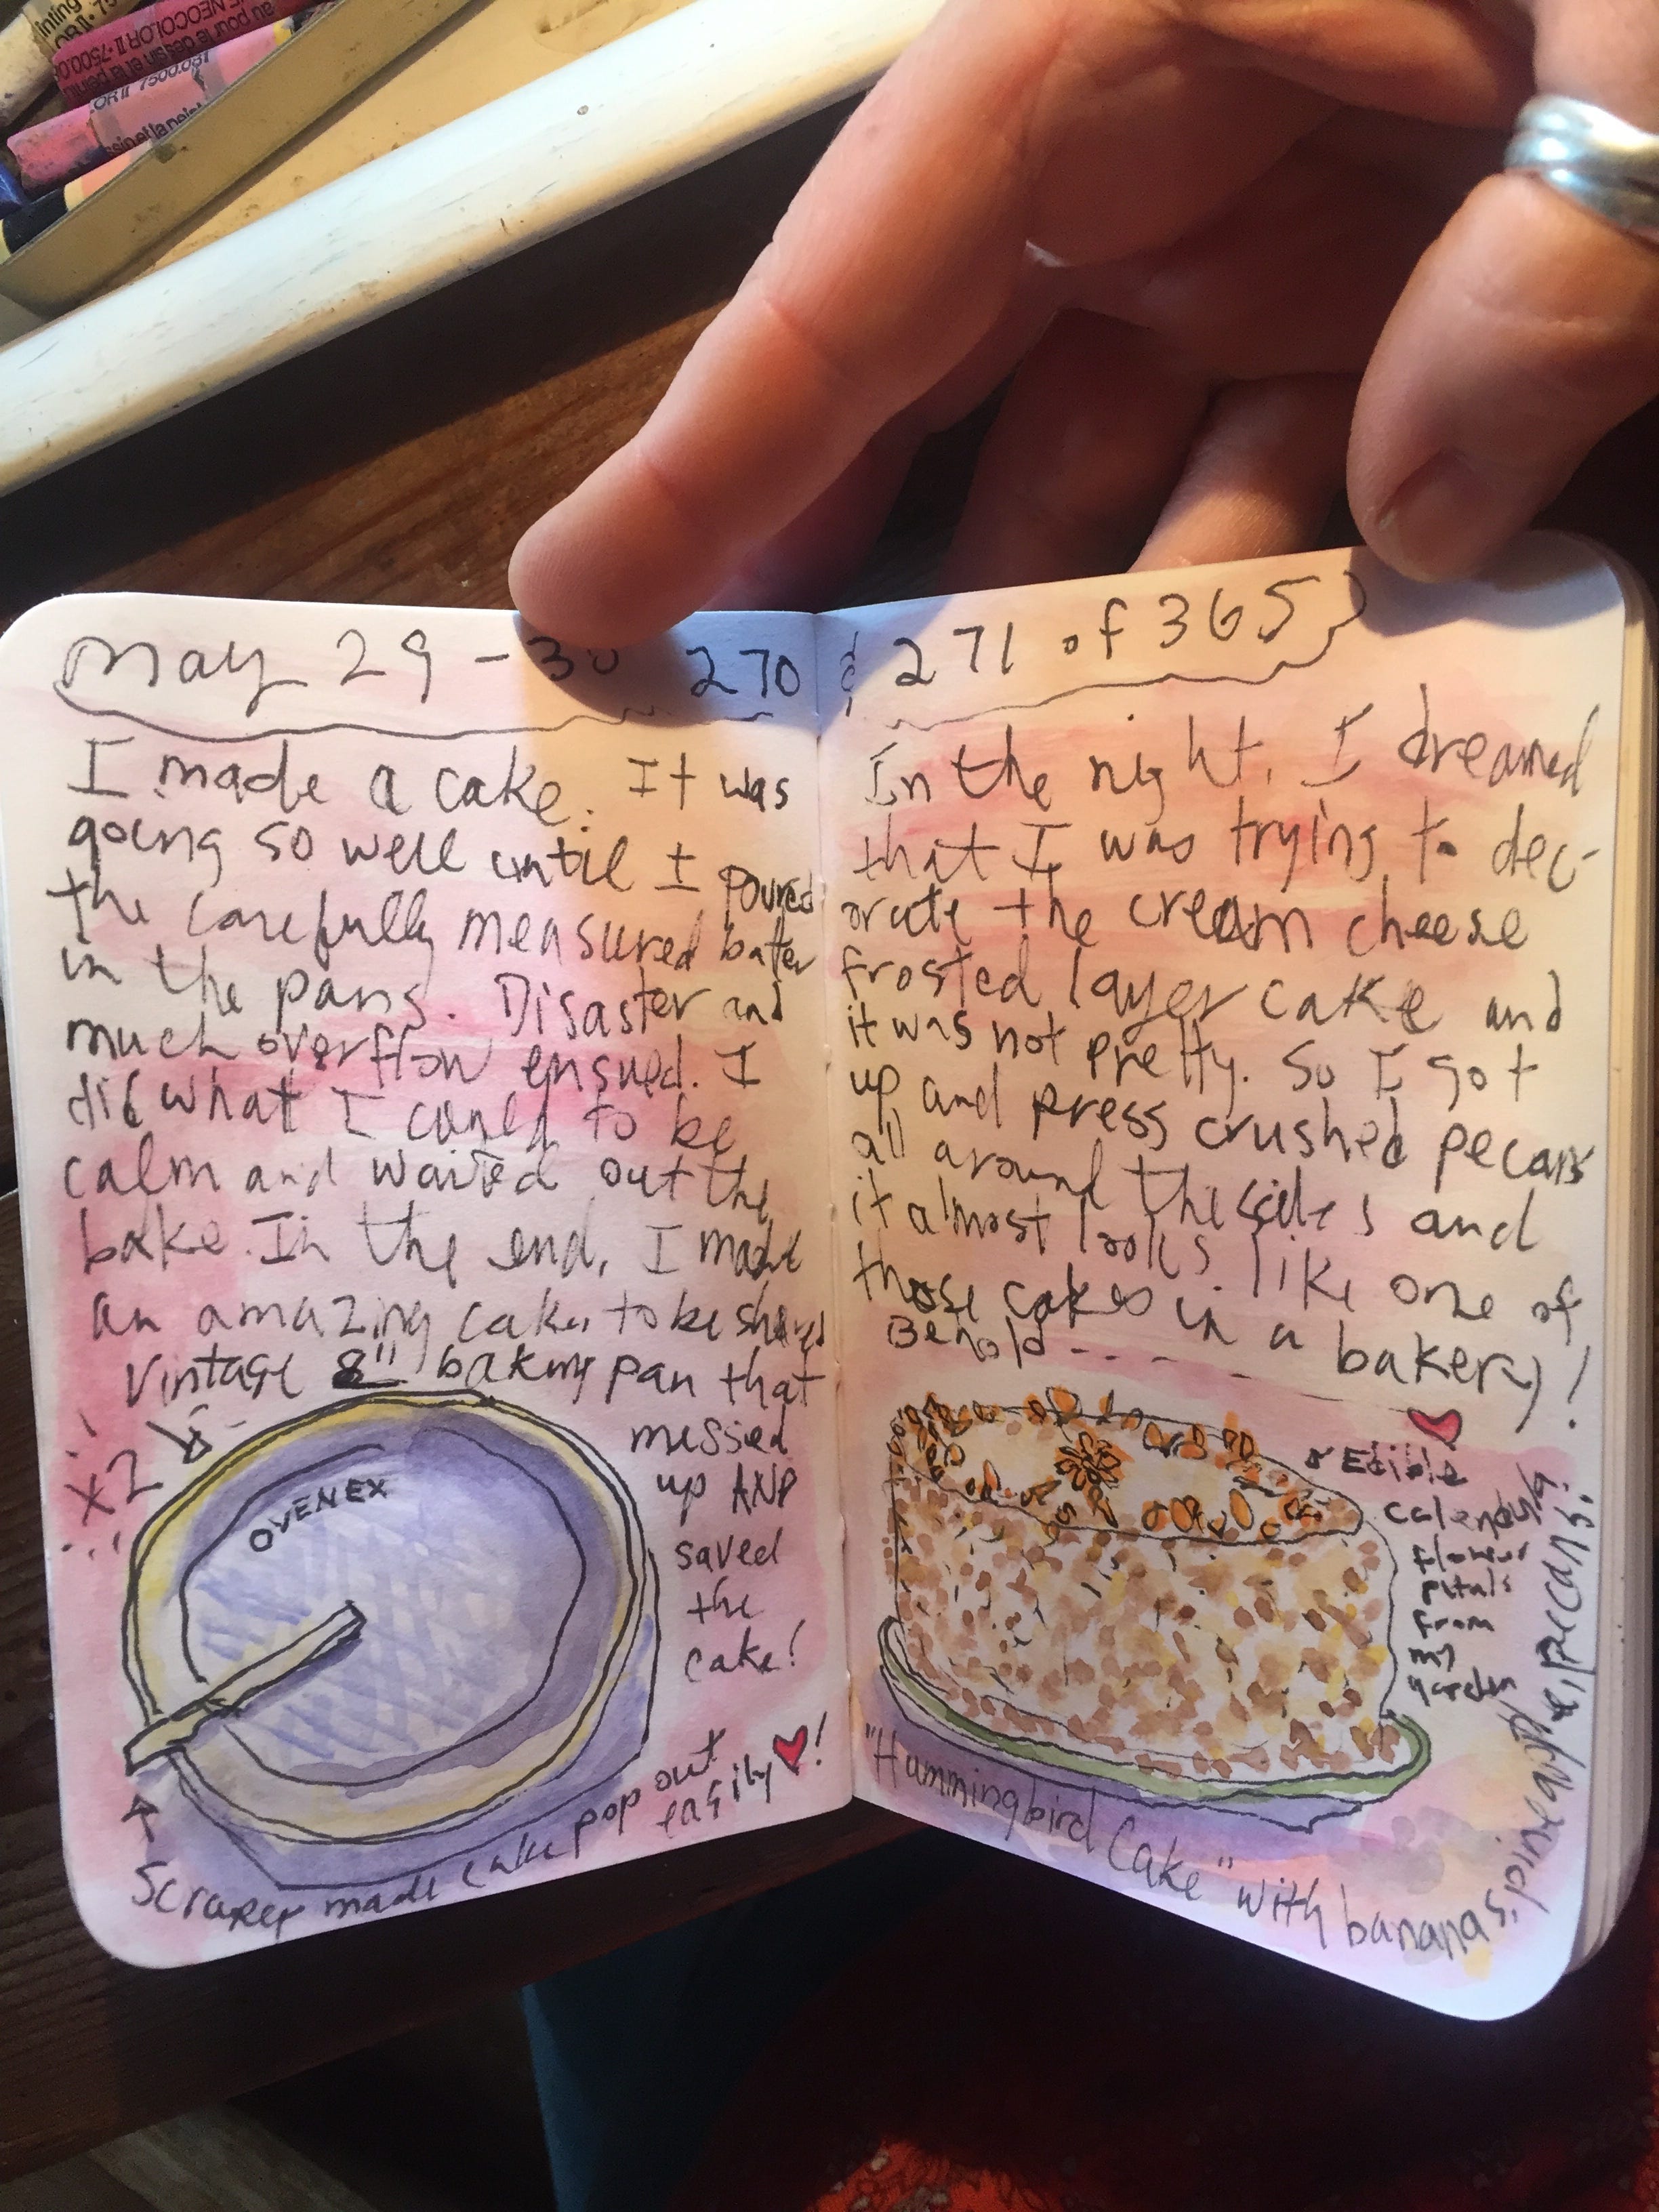 May 29 - 30 270 & 271 of 365
I made a cake. It was
going so well until I poured
the carefully measured batter
in the pans. Disaster and
much overflow ensued. I
did what I could to be
calm and waited out the
bake. In the end, I made
an amazing cake to be shared
Vintage 8" baking pan that
messed
up AND
saved
the
cake!
x2
OVENEX
Scraper made cake pop out
easily ♥!
In the night, I dreamed
that I was trying to dec-
orate the cream cheese
frosted layer cake and
it was not pretty. So I got
up and press crushed pecans
all around the sides and
it almost looks like one of
those cakes in a bakery!
Behold ----
Edible
calendula
flower
petals
from
my
garden
"Hummingbird Cake" with bananas, pineapple, pecans!
NEOCOLOR II · 7500.0
OR II 7500.081